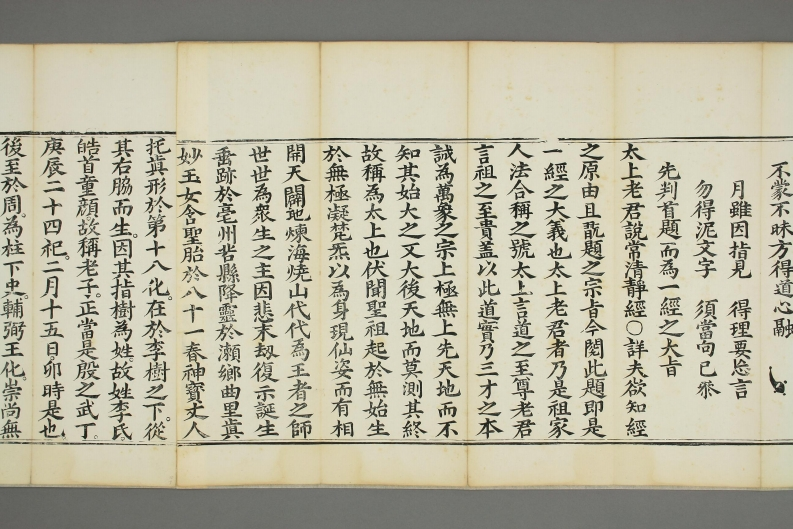 不蒙不昧方得道心融
月雖因指見 得理要忘言
勿得泥文字 須當向己叅
先判首題而為一經之大旨
太上老君說常清靜經〇詳夫欲知經
之原由且翫題之宗旨今閱此題即是
一經之大義也太上老君者乃是祖家
人法合稱之號太上言道之至尊老君
言祖之至貴盖以此道實乃三才之本
誠為萬象之宗上極無上先天地而不
知其始大之又大後天地而莫測其終
故稱為太上也伏聞聖祖起於無始生
於無極凝梵炁以為身現仙姿而有相
開天闢地煉海燒山代代為王者之師
世世為衆生之主因悲末刼復示誕生
垂跡於亳州苦縣降靈於瀨鄉曲里真
妙玉女含聖胎於八十一春神寳丈人
托眞形於第十八化。在於李樹之下。從
其右脇而生。因其指樹為姓故姓李氏。
皓首童顔故稱老子。正當是殷之武丁。
庚辰二十四祀。二月十五日。卯時是也。
後至於周。為柱下史。輔弼王化。崇尚無